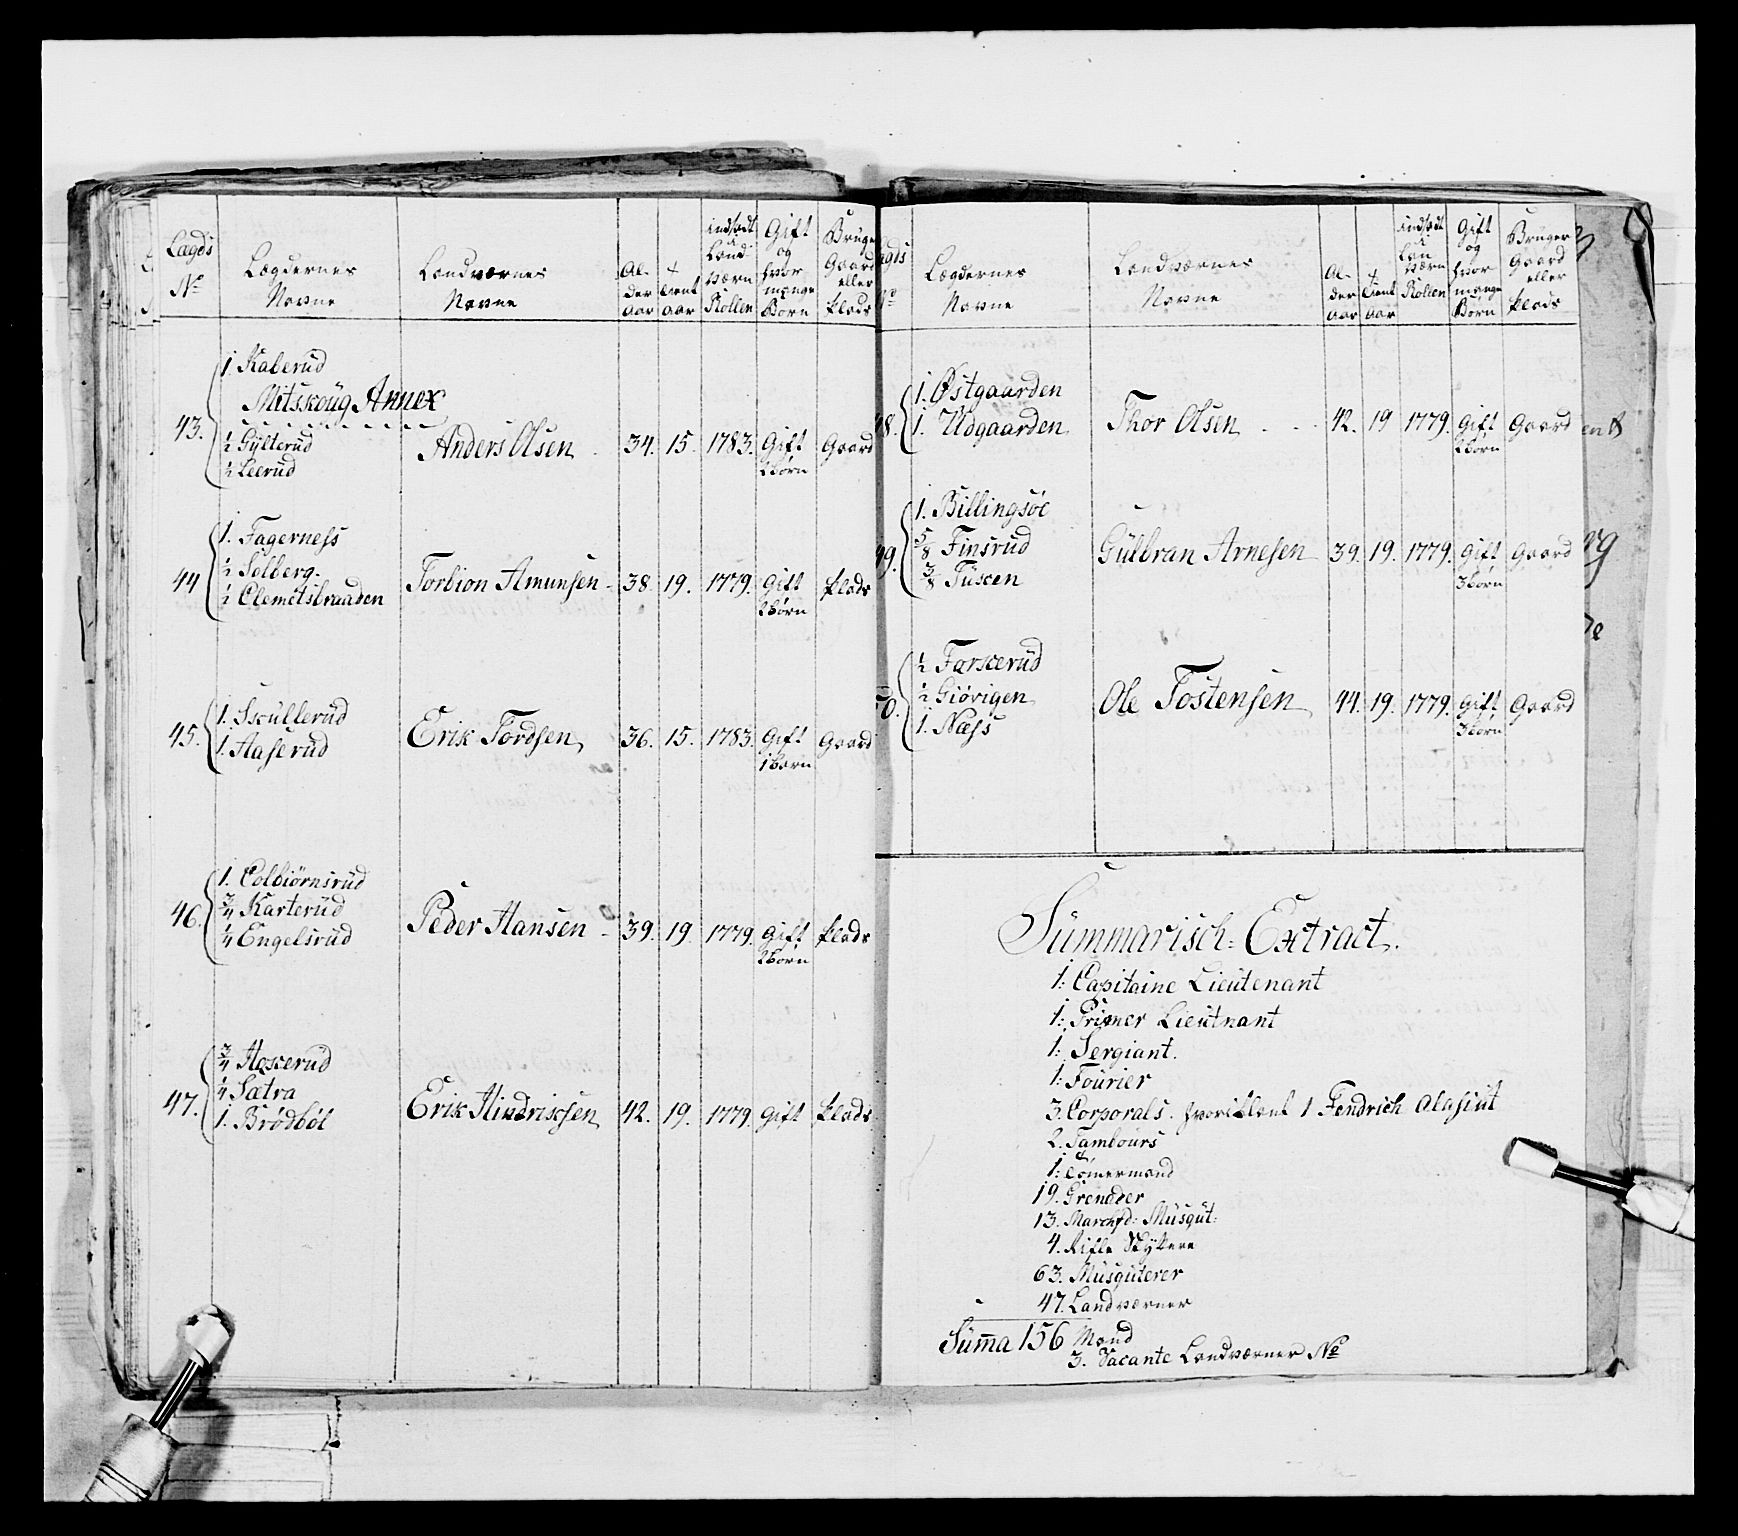 Lægds
No
Lægdernes
Navne
Landværnes
Navne
Al-
der
Aar
Tient
Aar
indsadt
i
Land
værn
Rollen
Gift
og
hvor
mange
Børn
Bruger
Gaard
eller
Plads
43.
1. Kaberud
Mitskoug Annex
1/2 Gylterud
1/2 Leerud
Anders Olsen 34. 15. 1783. Gift Gaard
2 Børn
44
1. Fagerness
1/2 Solberg.
1/2 Clemetsbraaden
Torbion Amunsen 38. 19. 1779. Gift Plads
2 Børn
45.
1. Skullerud
1. Haserud
Erik Tordsen 36. 15. 1783. Gift Gaard
1 Barn
46.
1. Colbiørnsrud
3/4 Karterud
1/4 Engelsrud
Peder Hansen 39. 19. 1779. Gift Plads
2 Børn
47.
3/4 Haxerud
1/4 Sætra
1. Brødbøl
Erik Hindrichsen 42. 19. 1779. Gift Plads
Lægdernes
Navne
Landværnes
Navne
Al-
der
Aar
Tient
Aar
indsadt
i
Lan
værn
Rollen
Gift
og
hvor
mange
Børn
Bruger
Gaard
eller
Plads
1. Østgaarden
1. Udgaarden
Thor Olsen 42. 19 1779. Gift Gaard
2 Børn
1. Billingsøe
5/8 Finsrud
3/8 Tuxen
Gulbran Arnesen 39. 19. 1779. Gift Gaard
3 Børn
1/2 Faxerud
1/2 Giørigen
1. Næss
Ole Tostensen 44. 19. 1779. Gift Gaard
3 Børn
Summarisch: Extract.
1: Capitaine Lieutenant
1: Primer Lieutnant
1: Sergiant.
1: Fourier
3. Corporals. hvoriblant 1 Fendrich
2. Tambours
1: Tømermand
19. Grenader
13. Marchfd: Musqut:
4. Rifle Skyttere
63. Musquterer
47. Landværner
Summa 156 Mand
3. Vacante Landværner No